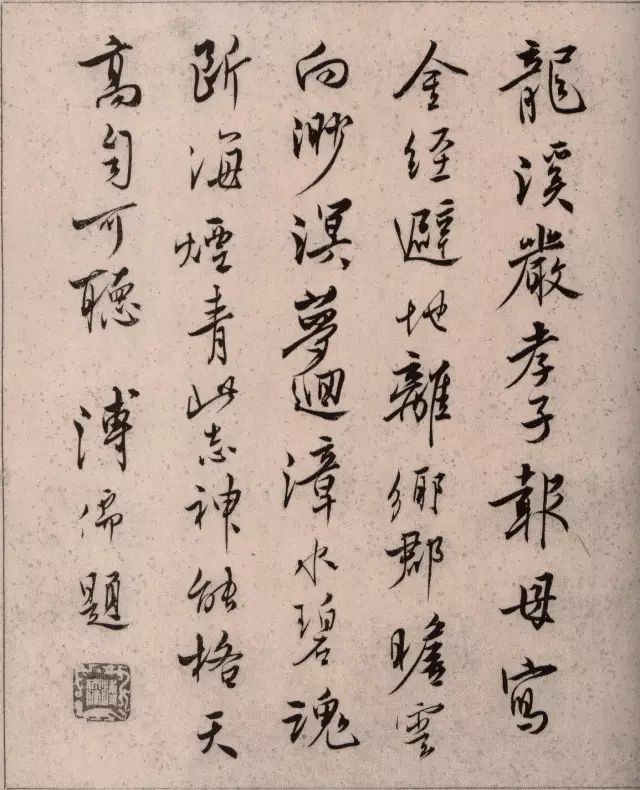 龍溪嚴孝子報母寫
金經避地離鄉郡瞻雲
向渺溟夢迴漳水碧魂
斷海煙青此志神能格天
高自可聽 溥儒題